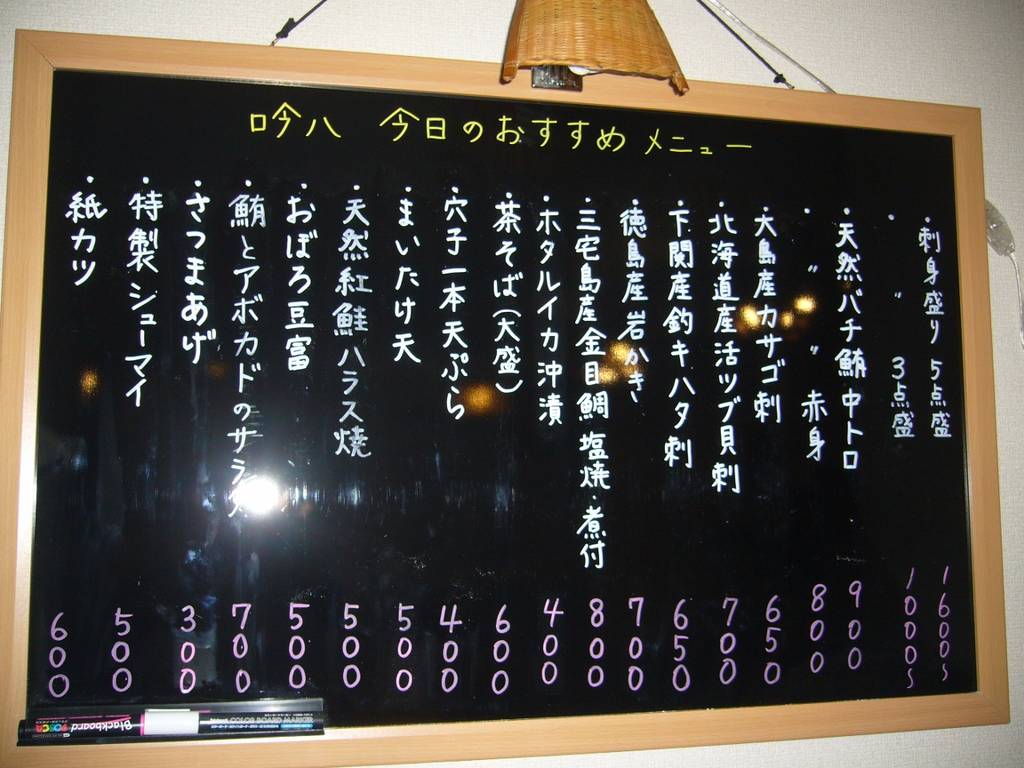 吟八 今日のおすすめメニュー
・刺身盛り 5点盛 1600〜
・〃 3点盛 1000〜
・天然バチ鮪 中トロ 900
・〃 〃 赤身 800
・大島産カサゴ刺 650
・北海道産活ツブ貝刺 700
・下関産釣キハタ刺 650
・徳島産岩かき 700
・三宅島産金目鯛塩焼・煮付 800
・ホタルイカ沖漬 400
・茶そば(大盛) 600
・穴子一本天ぷら 400
・まいたけ天 500
・天然紅鮭ハラス焼 500
・おぼろ豆富 500
・鮪とアボカドのサラダ 700
・さつまあげ 300
・特製シューマイ 500
・紙カツ 600
Blackboard POSCA
COLOR BOARD MARKER